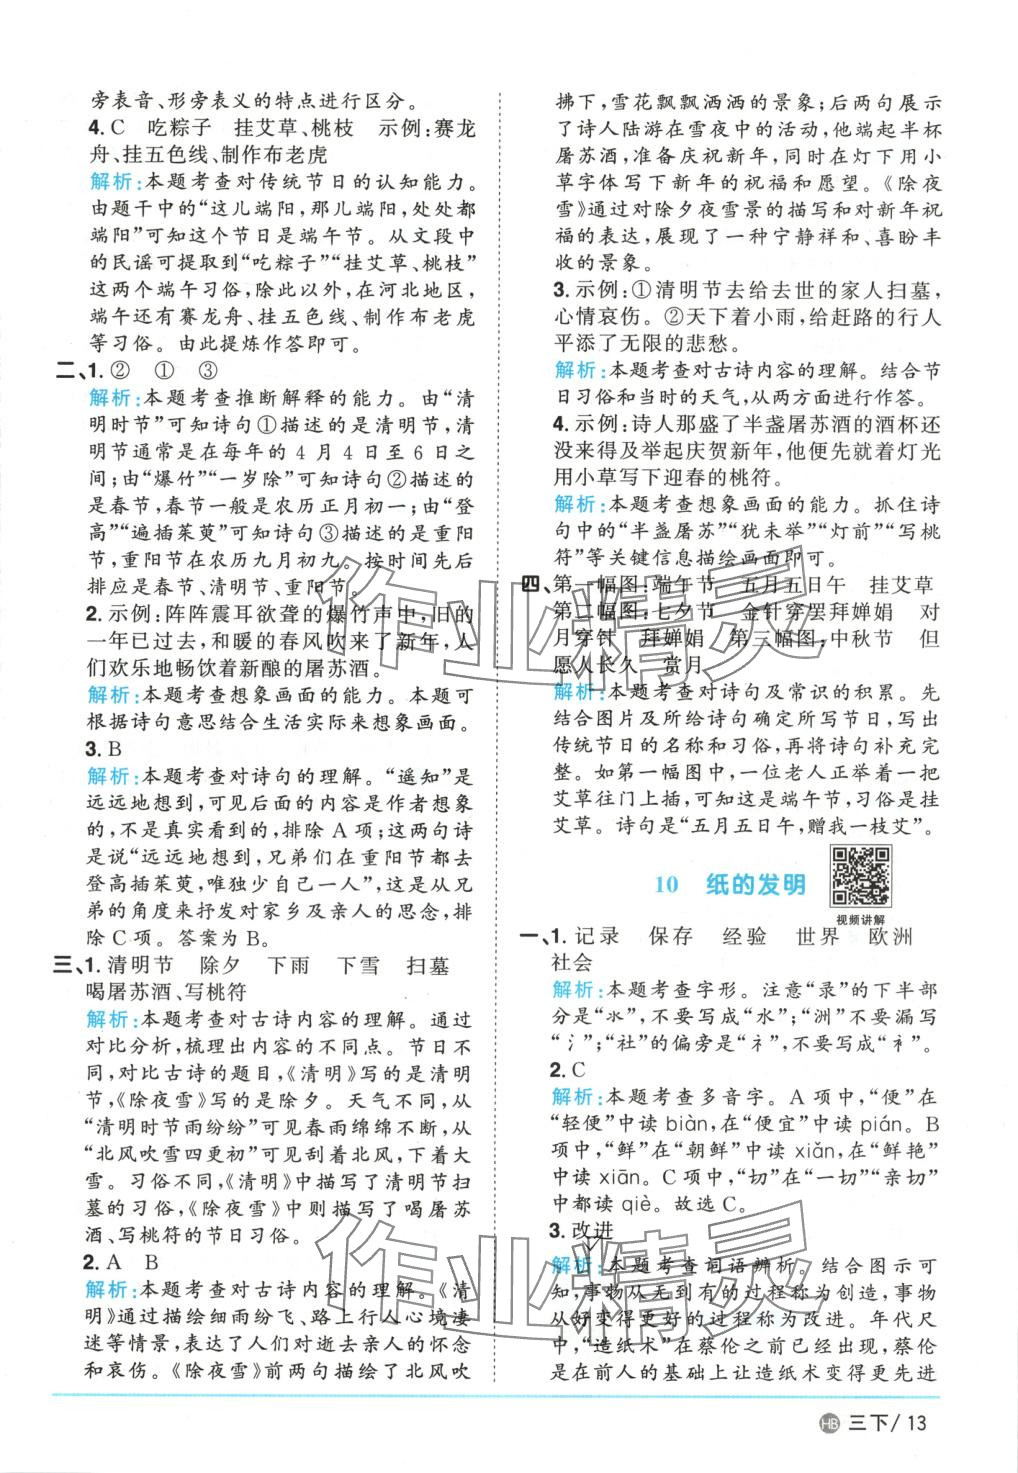 旁表音、形旁表义的特点进行区分。
4. C　吃粽子　挂艾草、桃枝　示例:赛龙
舟、挂五色线、制作布老虎
解析:本题考查对传统节日的认知能力。
由题干中的“这儿端阳,那儿端阳,处处都
端阳”可知这个节日是端午节。从文段中
的民谣可提取到“吃粽子”“挂艾草、桃枝”
这两个端午习俗,除此以外,在河北地区,
端午还有赛龙舟、挂五色线、制作布老虎
等习俗。由此提炼作答即可。
二、1. ②　①　③
解析:本题考查推断解释的能力。由“清
明时节”可知诗句①描述的是清明节,清
明节通常是在每年的 4 月 4 日至 6 日之
间;由“爆竹”“一岁除”可知诗句②描述的
是春节,春节一般是农历正月初一;由“登
高”“遍插茱萸”可知诗句③描述的是重阳
节,重阳节在农历九月初九。按时间先后
排应是春节、清明节、重阳节。
2. 示例:阵阵震耳欲聋的爆竹声中,旧的
一年已过去,和暖的春风吹来了新年,人
们欢乐地畅饮着新酿的屠苏酒。
解析:本题考查想象画面的能力。本题可
根据诗句意思结合生活实际来想象画面。
3. B
解析:本题考查对诗句的理解。“遥知”是
远远地想到,可见后面的内容是作者想象
的,不是真实看到的,排除 A 项;这两句诗
是说“远远地想到,兄弟们在重阳节都去
登高插茱萸,唯独少自己一人”,这是从兄
弟的角度来抒发对家乡及亲人的思念,排
除 C 项。答案为 B。
三、1. 清明节　除夕　下雨　下雪　扫墓
喝屠苏酒、写桃符
解析:本题考查对古诗内容的理解。通过
对比分析,梳理出内容的不同点。节日不
同,对比古诗的题目,《清明》写的是清明
节,《除夜雪》写的是除夕。天气不同,从
“清明时节雨纷纷”可见春雨绵绵不断,从
“北风吹雪四更初”可见刮着北风,下着大
雪。习俗不同,《清明》中描写了清明节扫
墓的习俗,《除夜雪》中描写了喝屠苏
酒、写桃符的节日习俗。
2. A　B
解析:本题考查对古诗内容的理解。《清
明》通过描绘细雨纷飞、路上行人心境凄
迷等情景,表达了人们对逝去亲人的怀念
和哀伤。《除夜雪》前两句描绘了北风吹
拂下,雪花飘飘洒洒的景象;后两句展示
了诗人陆游在雪夜中的活动,他端起半杯
屠苏酒,准备庆祝新年,同时在灯下用小
草字体写下新年的祝福和愿望。《除夜
雪》通过对除夕夜雪景的描写和对新年祝
福的表达,展现了一种宁静祥和、喜盼丰
收的景象。
3. 示例:①清明节去给去世的家人扫墓,
心情哀伤。②天下着小雨,给赶路的行人
平添了无限的悲愁。
解析:本题考查对古诗内容的理解。结合节
日习俗和当时的天气,从两方面进行作答。
4. 示例:诗人那盛了半盏屠苏酒的酒杯还
没来得及举起庆贺新年,他便就着灯光
用小草写下迎春的桃符。
解析:本题考查想象画面的能力。抓住诗
句中的“半盏屠苏”“犹未举”“灯前”“写桃
符”等关键信息描绘画面即可。
四、第一幅图:端午节　五月五日午　挂艾草
第二幅图:七夕节　金针穿罢拜婵娟　对
月穿针　拜婵娟　第三幅图:中秋节　但
愿人长久　赏月
解析:本题考查对诗句及常识的积累。先
结合图片及所给诗句确定所写节日,写出
传统节日的名称和习俗,再将诗句补充完
整。如第一幅图中,一位老人正举着一把
艾草往门上插,可知这是端午节,习俗是挂
艾草。诗句是“五月五日午,赠我一枝艾”。
10　纸的发明
视频讲解
一、1. 记录　保存　经验　世界　欧洲
社会
解析:本题考查字形。注意“录”的下半部
分是“氺”,不要写成“水”;“洲”不要漏写
“氵”;“社”的偏旁是“礻”,不要写成“衤”。
2. C
解析:本题考查多音字。A 项中,“便”在
“轻便”中读 biàn,在“便宜”中读 pián。B
项中,“鲜”在“朝鲜”中读 xiǎn,在“鲜艳”
中读 xiān。C 项中,“切”在“一切”“亲切”
中都读 qiè。故选 C。
3. 改进
解析:本题考查词语辨析。结合图示可
知,事物从无到有的过程称为创造,事物
从好变得更好的过程称为改进。年代尺
中,“造纸术”在蔡伦之前已经出现,蔡伦
是在前人的基础上让造纸术变得更先进
作业精灵
作业精灵
HB 三下/ 13